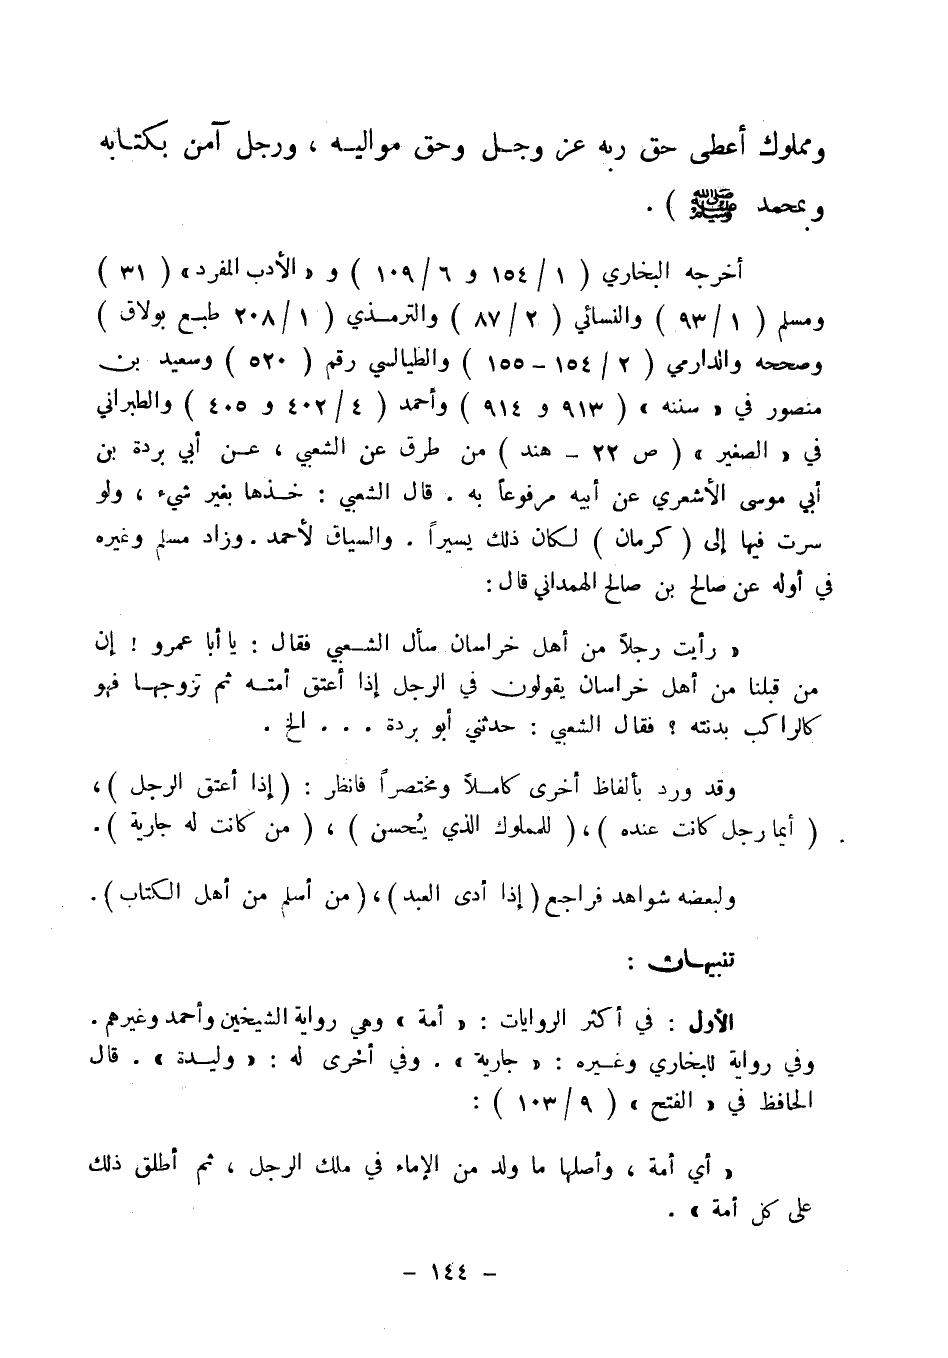 ومملوك أعطى حق ربه عز وجـل وحق مواليـه ، ورجل آمن بكتـابه
وبمحمد ﷺ ) .
أخرجه البخاري ( ١ / ١٥٤ و ٦ / ١٠٩ ) و « الأدب المفرد » ( ٣١ )
ومسلم ( ١ / ٩٣ ) والنسائي ( ٢ / ٨٧ ) والترمـذي ( ١ / ٢٠٨ طبـع بولاق )
وصححه والدارمي ( ٢ / ١٥٤ - ١٥٥ ) والطيالسي رقم ( ٥٢٠ ) وسعيد بن
منصور في « سننه » ( ٩١٣ و ٩١٤ ) وأحمد ( ٤ / ٤٠٢ و ٤٠٥ ) والطبراني
في « الصغير » ( ص ٢٢ - هند ) من طرق عن الشعبي ، عـن أبي بردة بن
أبي موسى الأشعري عن أبيه مرفوعاً به . قال الشعبي : خـذها بغير شيء ، ولو
سرت فيها إلى ( كرمان ) لكان ذلك يسيراً . والسياق لأحمد . وزاد مسلم وغيره
في أوله عن صالح بن صالح الهمداني قال :
« رأيت رجلاً من أهل خراسان سأل الشـعبي فقال : يا أبا عمرو ! إن
من قبلنا من أهل خراسان يقولون في الرجل إذا أعتق أمتـه ثم تزوجهـا فهو
كالراكب بدنته ؟ فقال الشعبي : حدثني أبو بردة . . . الخ .
وقد ورد بألفاظ أخرى كامـلاً ومختصراً فانظر : ( إذا أعتق الرجل ) ،
( أيما رجل كانت عنده ) ، ( للمملوك الذي يُحسن ) ، ( من كانت له جارية ) .
ولبعضه شواهد فراجع ( إذا أدى العبد ) ، ( من أسلم من أهل الكتاب ) .
تنبيهـات :
الأول : في أكثر الروايات : « أمة » وهي رواية الشيخين وأحمد وغيرهم .
وفي رواية للبخاري وغـيره : « جارية » . وفي أخرى له : « وليـدة » . قال
الحافظ في « الفتح » ( ٩ / ١٠٣ ) :
« أي أمة ، وأصلها ما ولد من الإماء في ملك الرجل ، ثم أطلق ذلك
على كل أمة » .
- ١٤٤ -